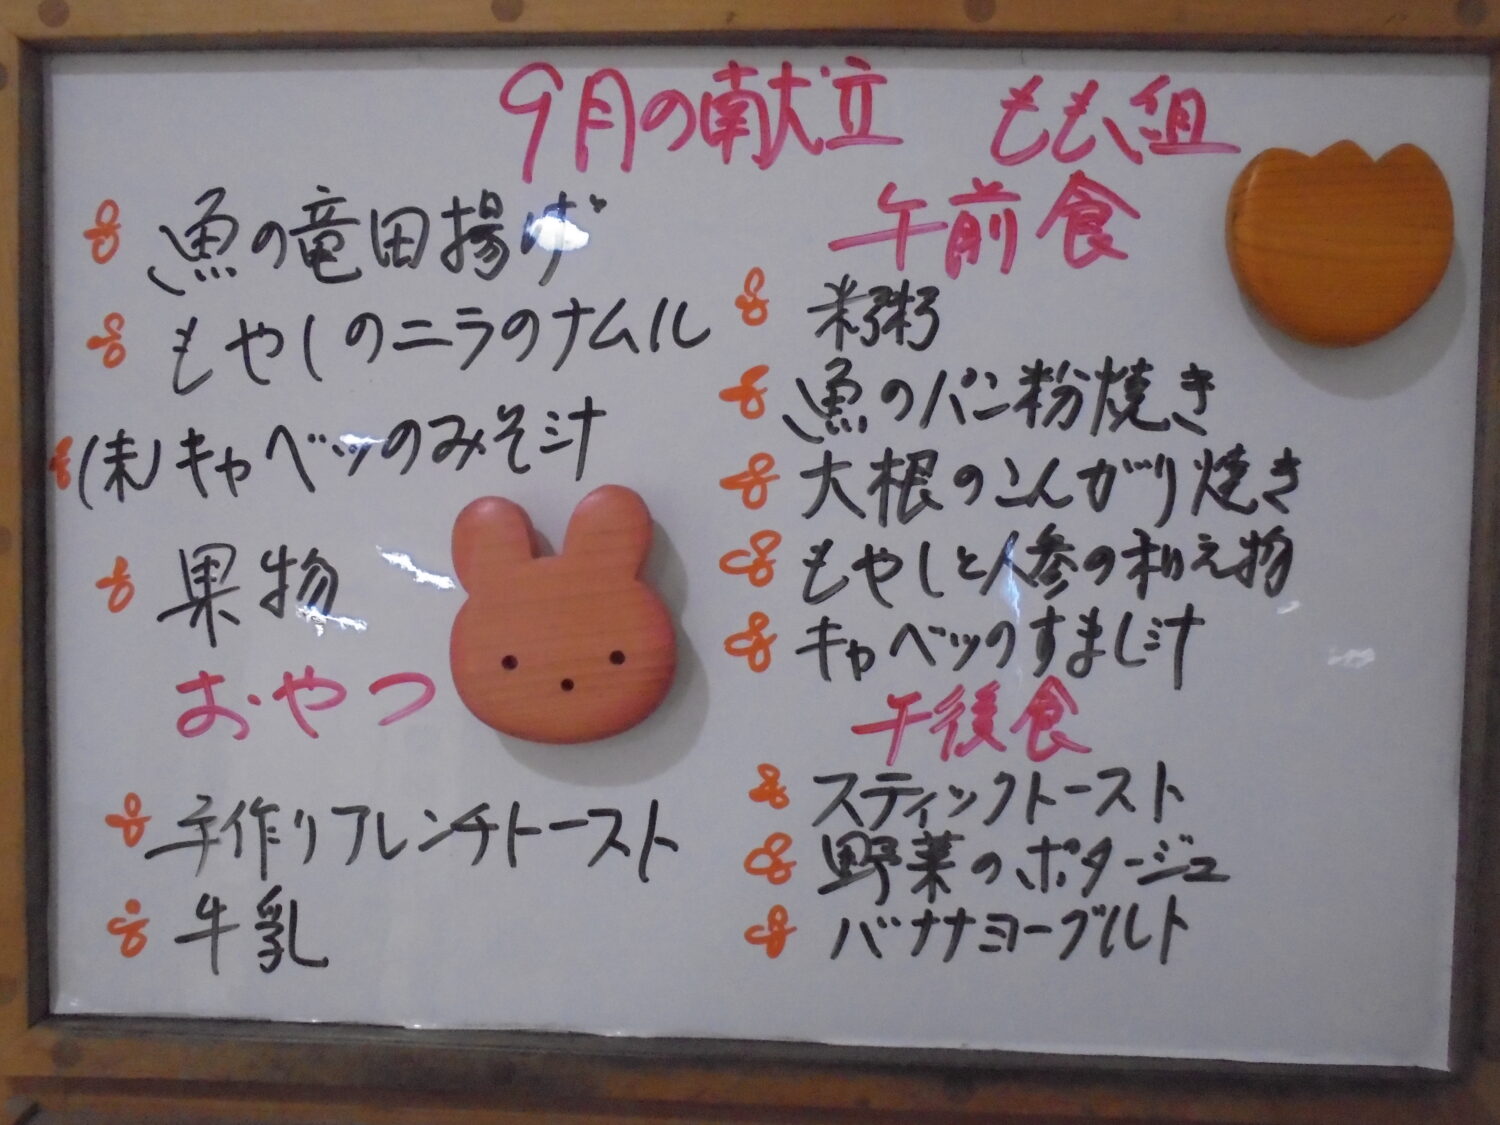 9月の献立 もも組
魚の竜田揚げ
もやしのニラのナムル
(未)キャベツのみそ汁
果物
おやつ
手作りフレンチトースト
牛乳
午前食
粥
魚のパン粉焼き
大根のこんがり焼き
もやしと人参の和え物
キャベツのすまし汁
午後食
スティックトースト
野菜のポタージュ
バナナヨーグルト